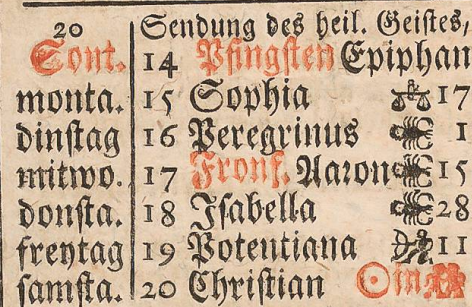 20 Sendung des heil. Geistes,
Sont. 14 Pfingsten Epiphan
monta. 15 Sophia 17
dinstag 16 Peregrinus 1
mitwo. 17 Fronf. Aaron 15
donsta. 18 Isabella 28
freytag 19 Potentiana 11
samsta. 20 Christian ☉ in